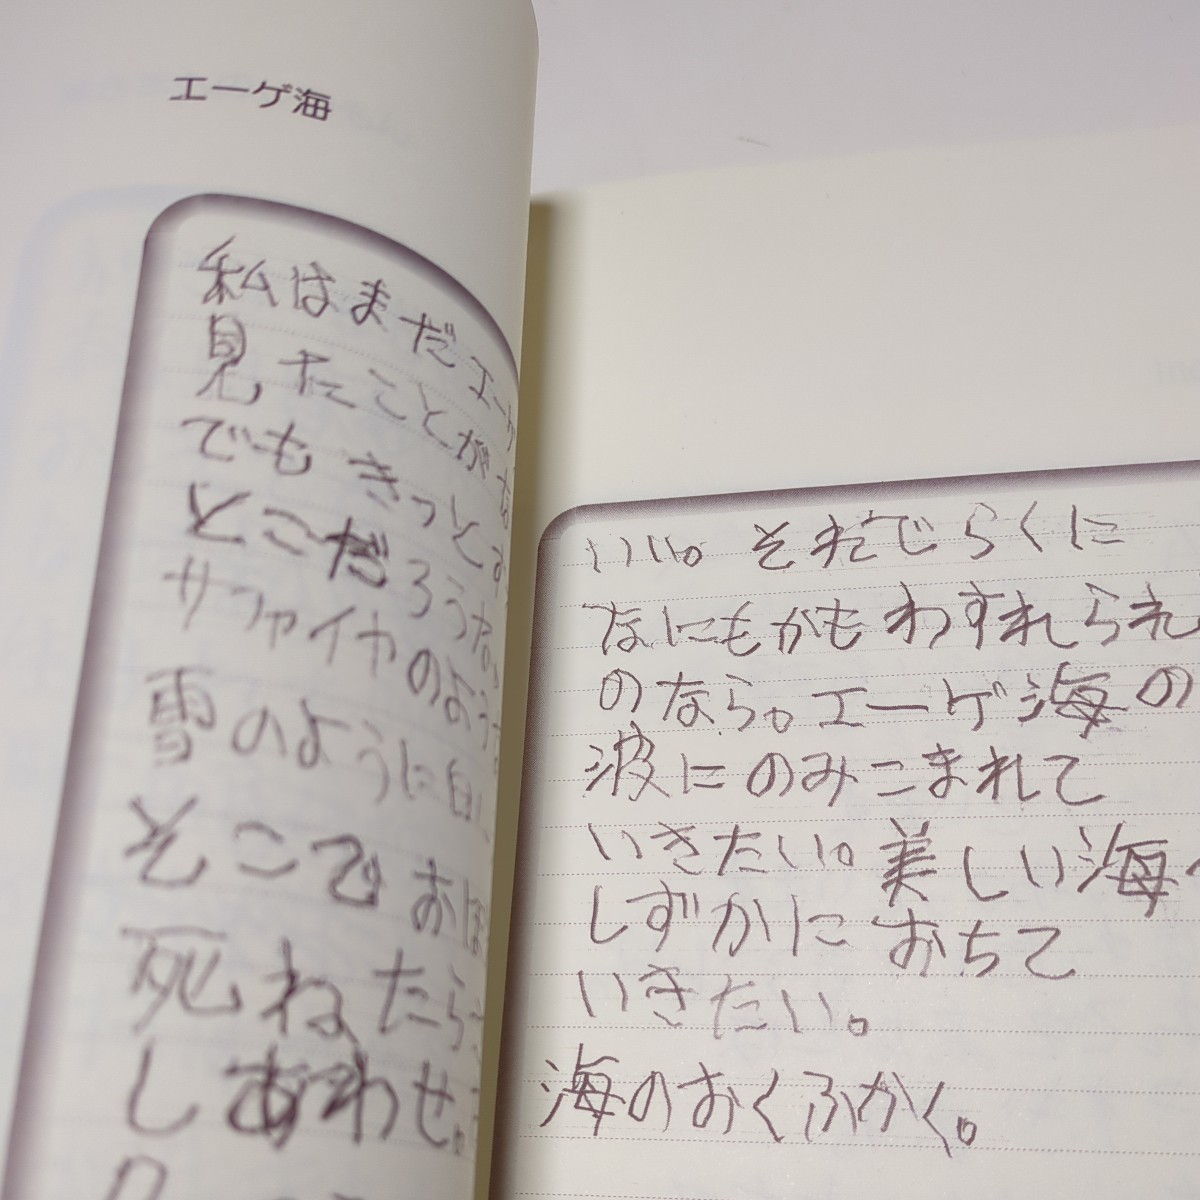 エーゲ海
私はまだエーゲ
見たことがな
でもきっとす
とこだろうな
サファイヤのよう
雪のように白い
そこでおぼ
死ねたら
しあわせ。
いい。それでらくに
なにもかもわすれられ
のなら。エーゲ海の
波にのみこまれて
いきたい。美しい海
しずかにおちて
いきたい。
海のおくふかく。